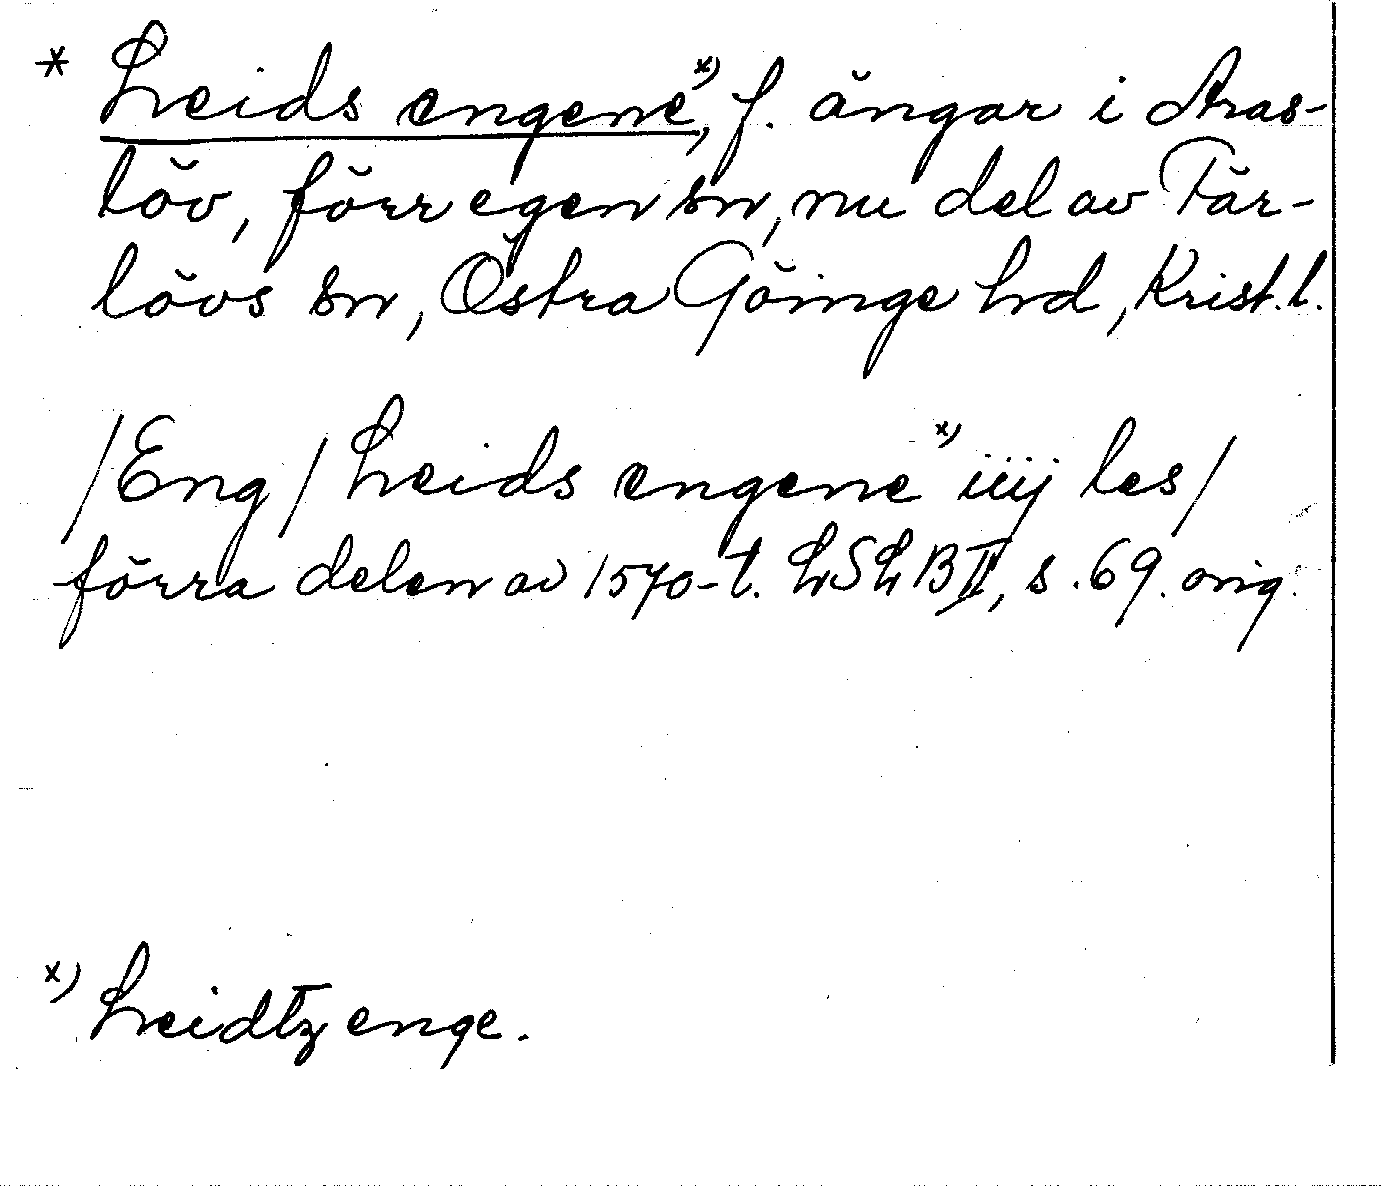 * Leids engene x), f. ängar i Aras-
löv, förr egen sn, nu del av Fär-
lövs sn, Östra Göinge hd, Krist. l.
/Eng/ Leids engene x) iiij les/
förra delen av 1570-t. LSLB II, s. 69. orig.
x) Leidtz enge.